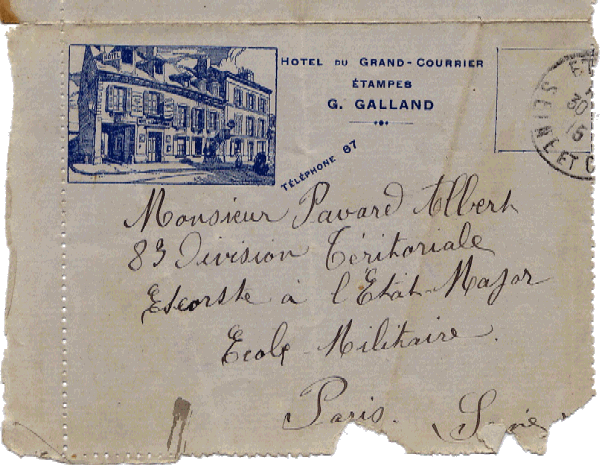 HOTEL DU GRAND-COURRIER
ÉTAMPES
G. GALLAND
TÉLÉPHONE 87
HOTEL
30
15
SEINE ET
Monsieur Pavard Albert
83 Division Téritoriale
Escorste à l'Etat-Major
Ecole Militaire.
Paris.